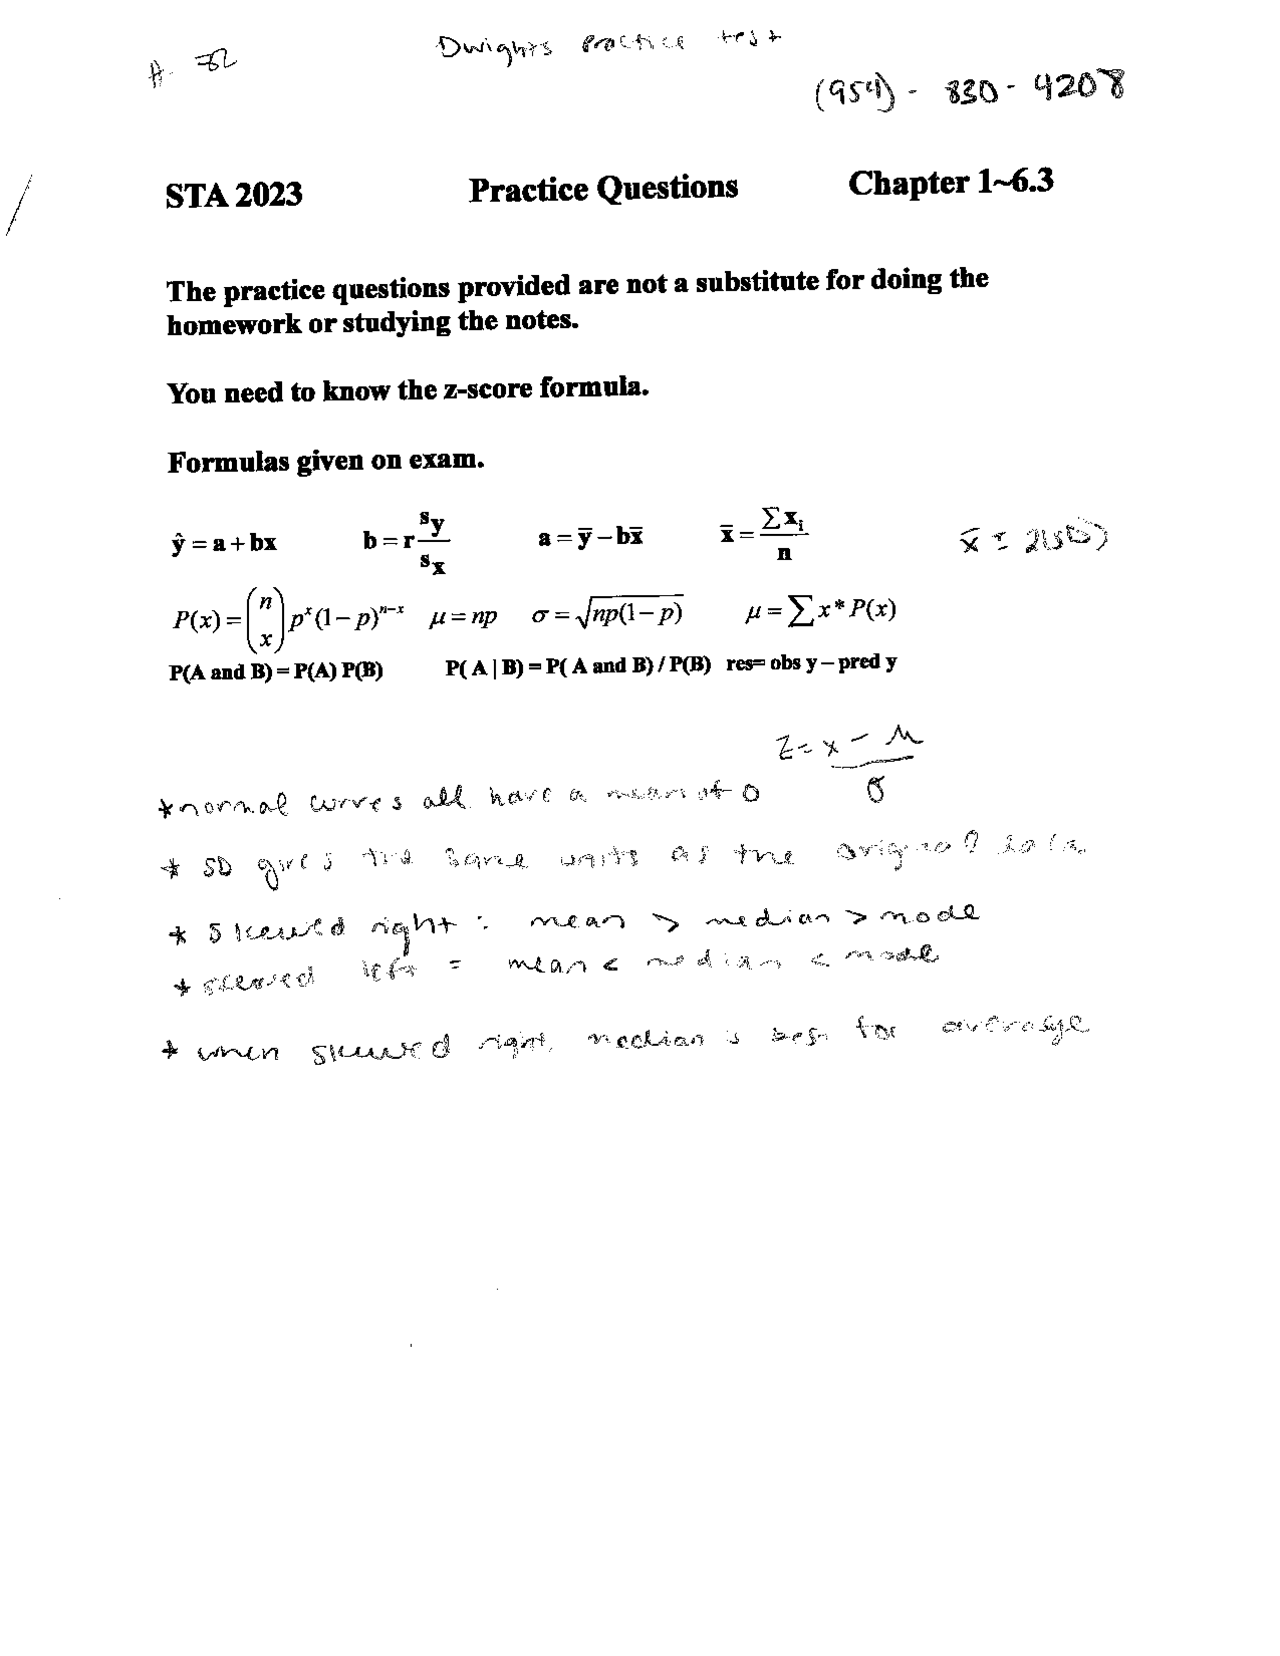 Dwights Practice test
A- 82
(954) - 830 - 4208
STA 2023 Practice Questions Chapter 1~6.3
The practice questions provided are not a substitute for doing the
homework or studying the notes.
You need to know the z-score formula.
Formulas given on exam.
ŷ = a + bx b = r s_y / s_x a = ȳ − bx̄ x̄ = ∑x_i / n x̄ ± 2(SD)
P(x) = (n x) p^x (1 − p)^(n−x) μ = np σ = √np(1 − p) μ = ∑ x * P(x)
P(A and B) = P(A) P(B) P( A | B) = P( A and B) / P(B) res= obs y – pred y
z = x − μ / σ
* normal curves all have a mean of 0
* SD gives the same units as the original data
* Skewed right : mean > median > mode
* skewed left = mean < median < mode
* when skewed right, median is best for average